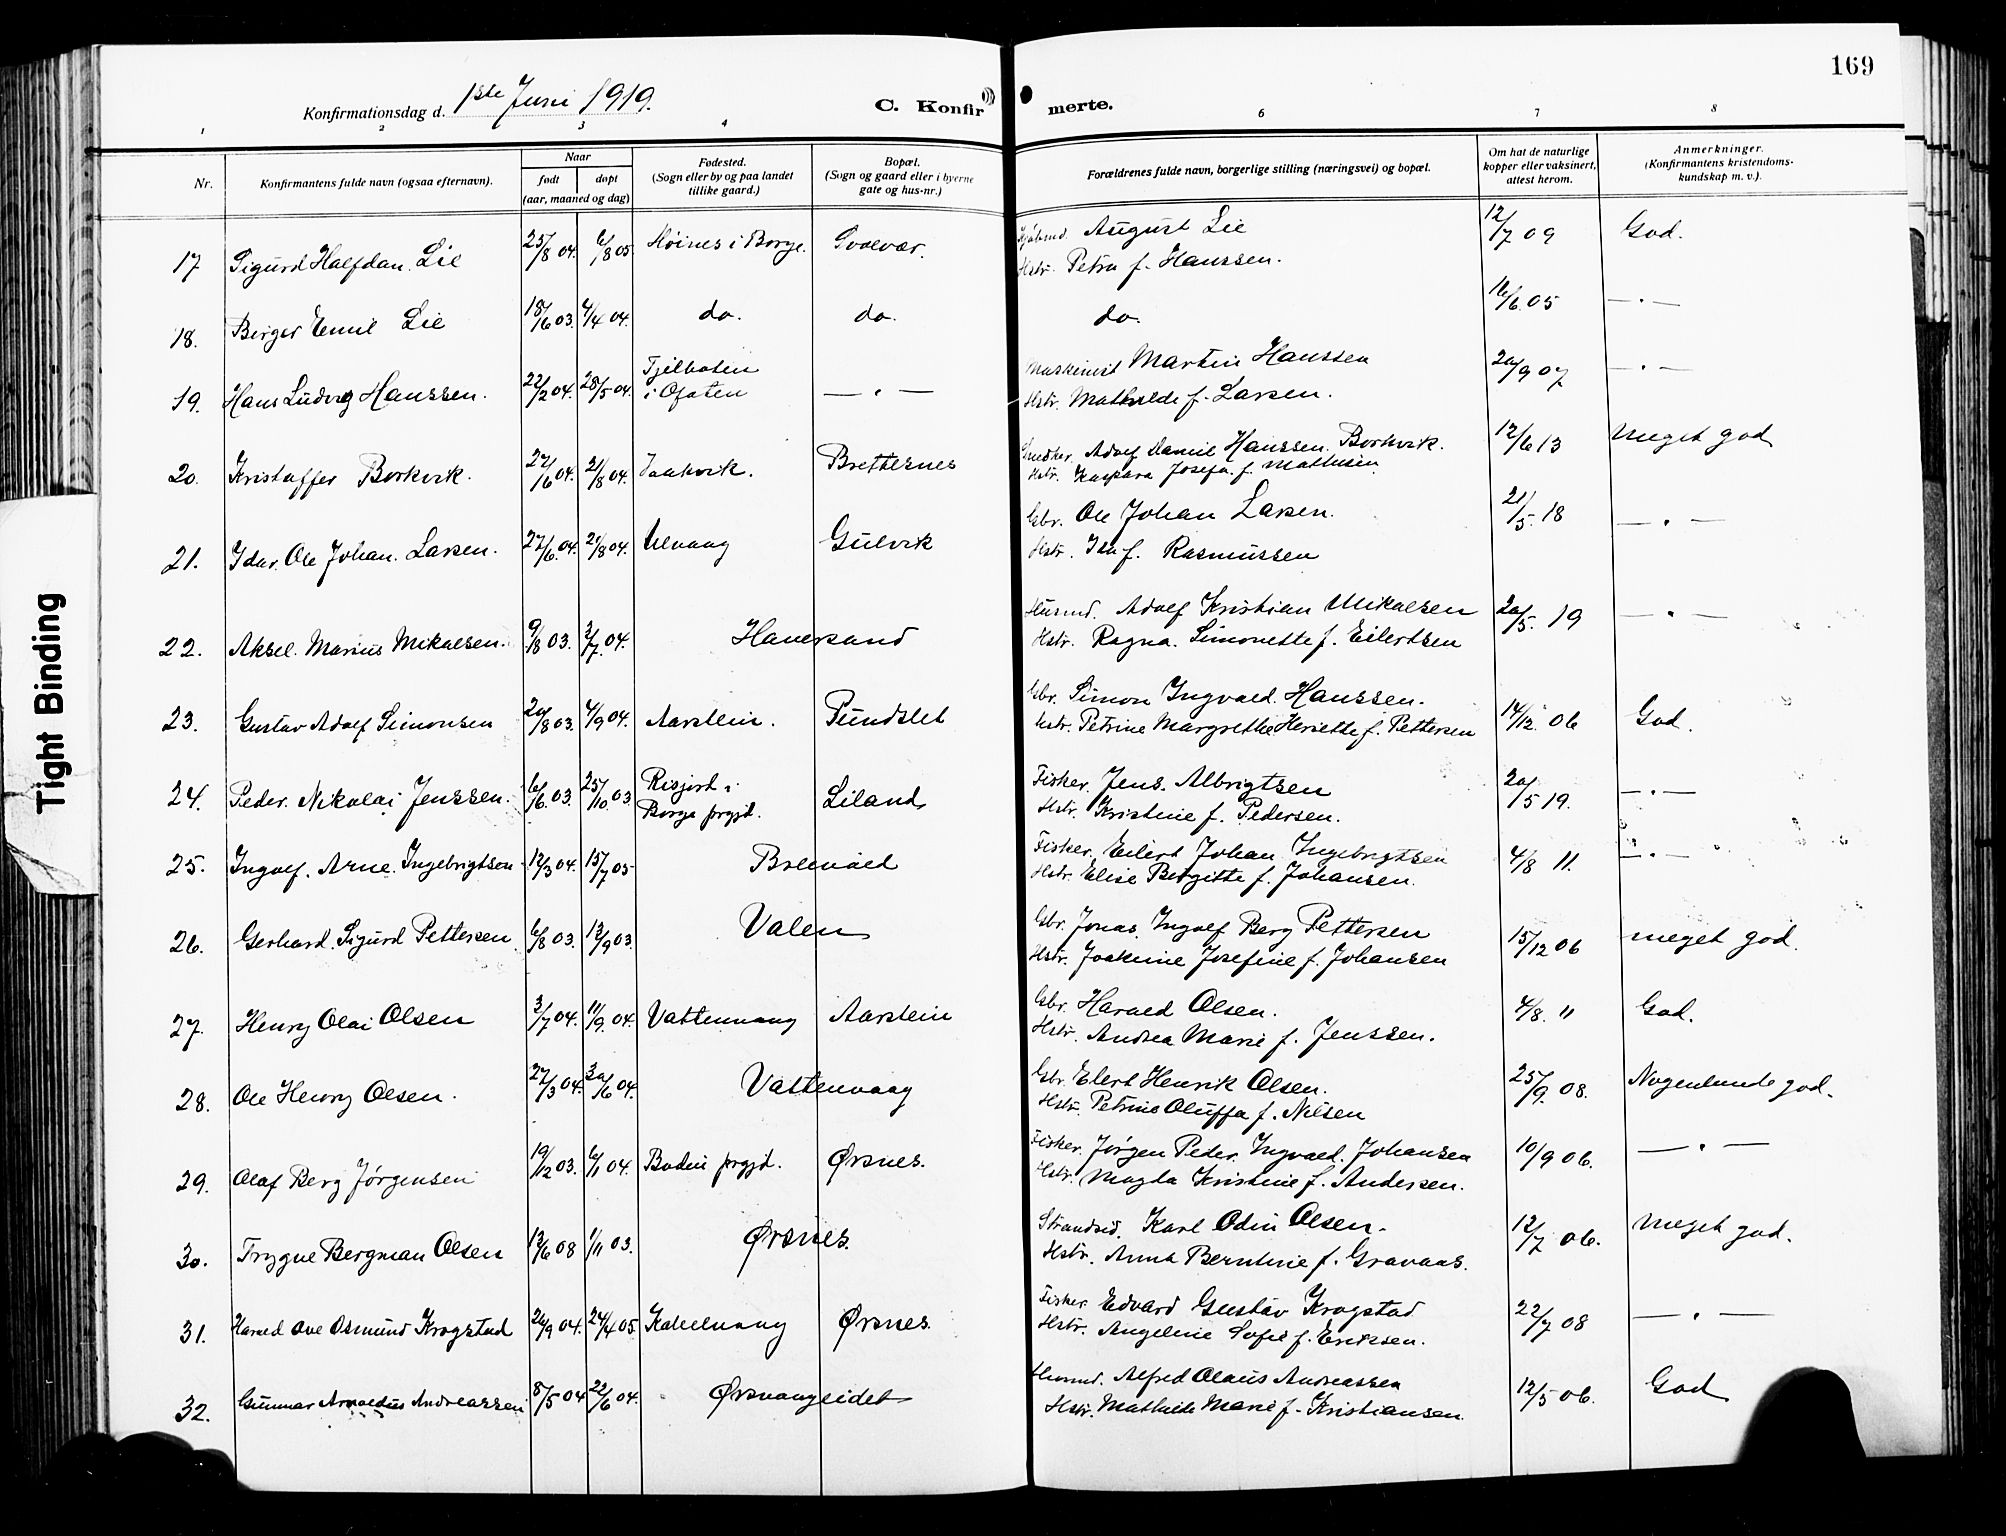 169
Konfirmationsdag d. 1ste Juni 1919. C. Konfirmerte.
1 2 3 4 6 7 8
Nr. Konfirmantens fulde navn (ogsaa efternavn). Naar født døpt (aar, maaned og dag) Fødested. (Sogn eller by og paa landet tillike gaard.) Bopæl. (Sogn og gaard eller i byerne gate og hus-nr.) Forældrenes fulde navn, borgerlige stilling (næringsvei) og bopæl. Om hat de naturlige kopper eller vaksinert, attest herom. Anmerkninger. (Konfirmantens kristendomskundskap m. v.).
17 Sigurd Halfdan Lie 25/8 04. 6/8 05 Høines i Borge. Svolvær. August Lie 12/7 09 God.
Hstr. Petra f. Hanssen.
18. Berger Emil Lie 18/6 03. 4/4 04. do. do. do. 16/6 05 — " —
19. Hans Ludvig Hanssen. 22/2 04. 28/5 04. Tjelboten i Ofoten — " — Maskinist Martin Hanssen 20/9 07 — " —
Hstr. Mathilde f. Larsen.
20. Kristoffer Borkvik. 27/6 04. 21/8 04. Brettesnes Adolf Daniel Hanssen Borkvik. 12/6 13 Meget god
Hstr. Kaspara Josefa f. Mathisen
21. Idar Ole Johan Larsen. 27/6 04. 21/8 04. Ulvaag Gulvik Gbr. Ole Johan Larsen. 21/5 18 — " —
Hstr. Ida f. Rasmussen
22. Aksel Marius Mikalsen. 9/8 03. 3/7 04. Haversand Husmd. Adolf Kristian Mikalsen 20/5 19 — " —
Hstr. Ragna Simonette f. Eilertsen
23. Gustav Adolf Simonsen 20/8 03. 4/9 04. Aarstein. Pundslet Gbr. Simon Ingvald Hanssen. 14/12 06 God.
Hstr. Petrine Margrethe Heriette f. Pettersen
24. Peder Nikolai Jenssen. 6/6 03. 25/10 03 Risjord i Borge prgjd. Liland Fisker Jens Albrigtsen 20/5 19. — " —
Hstr. Kristine f. Pedersen.
25. Ingolf Arne Ingebrigtsen 12/3 04. 15/7 05 Fisker Eilert Johan Ingebrigtsen 4/8 11. — " —
Hstr. Elise Birgitte f. Johansen.
26. Gerhard Sigurd Pettersen 6/8 03. 13/9 03 Valen Gbr. Jonas Ingolf Berg Pettersen 15/12 06 meget god.
Hstr. Joakime Josefine f. Johansen
27. Henry Olai Olsen 3/7 04. 11/9 04. Vattenvaag Aarstein Gbr. Harald Olsen. 4/8 11 God.
Hstr. Andrea Marie f. Jenssen.
28. Ole Henry Olsen. 27/3 04. 30/6 04. Vattenvaag Gbr. Elert Henrik Olsen. 25/9 08. Nogenlunde god.
Hstr. Petrine Oluffa f. Nilsen
29. Olaf Berg Jørgensen 19/12 03. 6/1 04. Bodin prgjd. Ørsnes. Fisker Jørgen Peder Ingvald Johansen 10/9 06. — " —
Hstr. Magda Kristine f. Andersen.
30. Trygve Bergman Olsen 13/6 08 1/11 03. Ørsnes. Strandsid. Karl Odin Olsen. 12/7 06. Meget god.
Hstr. Anna Berntine f. Gravaas.
31. Harald Ove Osmund Krogstad 26/9 04. 24/4 05. Kabelvaag Ørsnes Fisker Edvard Gustav Krogstad 22/7 08 — " —
Hstr. Angeline Sofie f. Eriksen.
32. Gunnar Arnoldus Andreassen 8/5 04 22/6 04. Ørsvaageidet Husmd. Alfred Olaus Andreassen 12/5 06. God
Hstr. Mathilde Marie f. Kristiansen.
Tight Binding